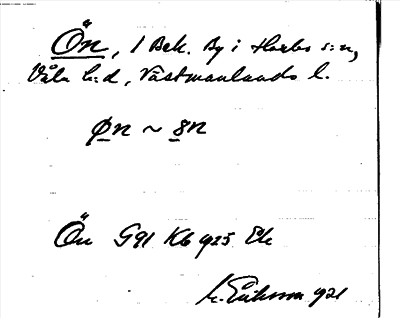 Ön, 1 Bek. By i Harbo s:n,
Våla h:d, Västmanlands l.
ø̱n ~ 8̱n
Ön G91 K6 925 Ek
M. Eriksson 921